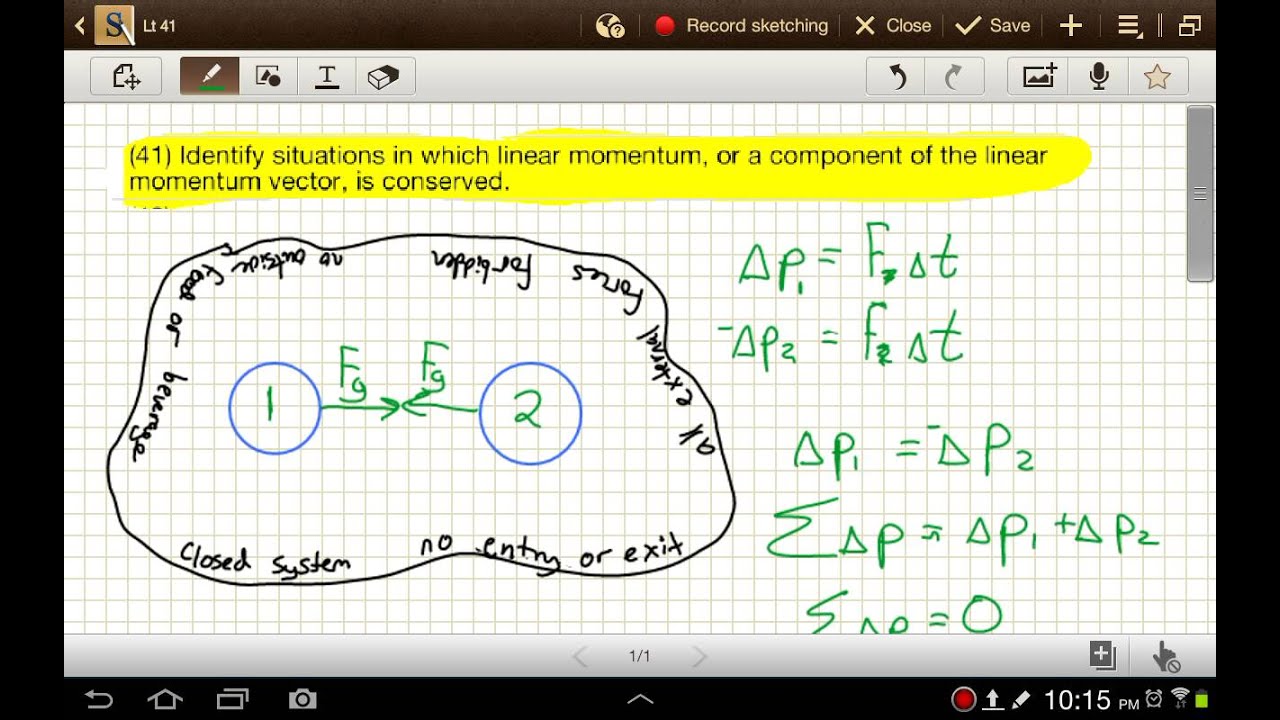 Lt 41
Record sketching
Close
Save
T
(41) Identify situations in which linear momentum, or a component of the linear
momentum vector, is conserved.
no outside food or beverage
all external forces forbidden
1
Fg
Fg
2
closed system no entry or exit
Δp₁ = F Δt
-Δp₂ = F Δt
Δp₁ = -Δp₂
ΣΔp = Δp₁ + Δp₂
ΣΔp = 0
1/1
10:15 PM